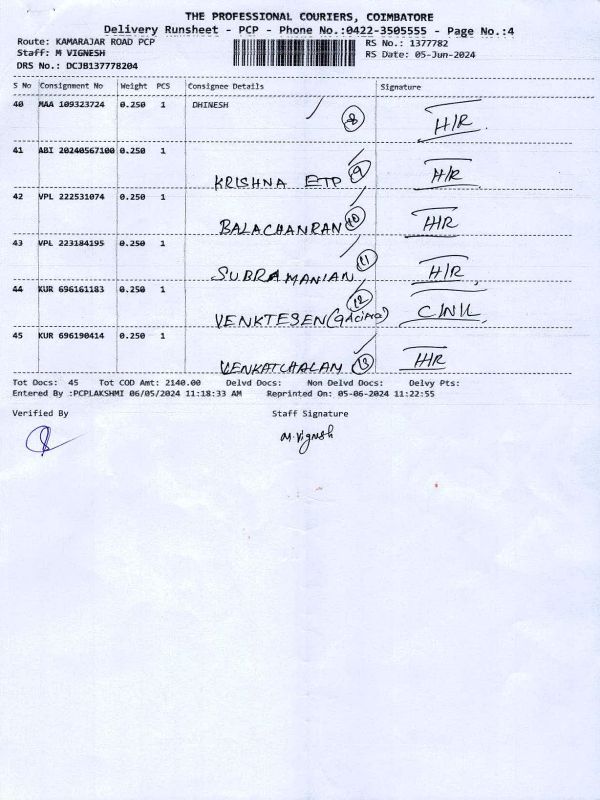 THE PROFESSIONAL COURIERS, COIMBATORE
Delivery Runsheet - PCP - Phone No.:0422-3505555 - Page No.:4
Route: KAMARAJAR ROAD PCP RS No.: 1377782
Staff: M VIGNESH RS Date: 05-Jun-2024
DRS No.: DCJB137778204
S No Consignment No Weight PCS Consignee Details Signature
40 MAA 109323724 0.250 1 DHINESH 8 H/R
41 ABI 20240567100 0.250 1 KRISHNA ETP 9 H/R
42 VPL 222531074 0.250 1 BALACHANRAN 10 H/R
43 VPL 223184195 0.250 1 SUBRAMANIAN 11 H/R
44 KUR 696161183 0.250 1 VENKTESEN 12
45 KUR 696190414 0.250 1 VENKATCHALAM 13 H/R
Tot Docs: 45 Tot COD Amt: 2140.00 Delvd Docs: Non Delvd Docs: Delvy Pts:
Entered By :PCPLAKSHMI 06/05/2024 11:18:33 AM Reprinted On: 05-06-2024 11:22:55
Verified By Staff Signature
M. Vignesh